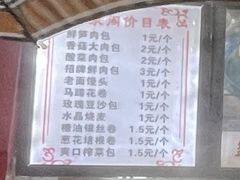 阁价目表
鲜笋肉包 1元/个
香菇大肉包 1元/个
酸菜肉包 2元/个
招牌鲜肉包 3元/个
老面馒头 1元/个
马蹄花卷 1元/个
玫瑰豆沙包 1元/个
水晶烧麦 1元/个
糖油银丝卷 1.5元/个
葱花培根卷 1.5元/个
爽口榨菜包 1.5元/个